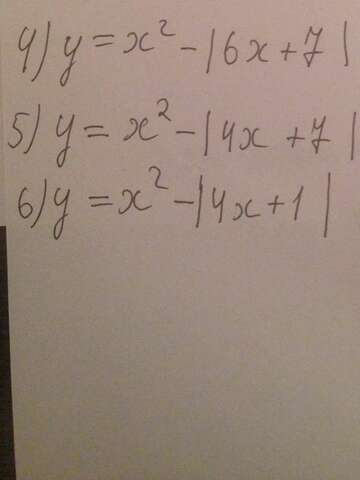 4) y = x² - |6x + 7|
5) y = x² - |4x + 7|
6) y = x² - |4x + 1|